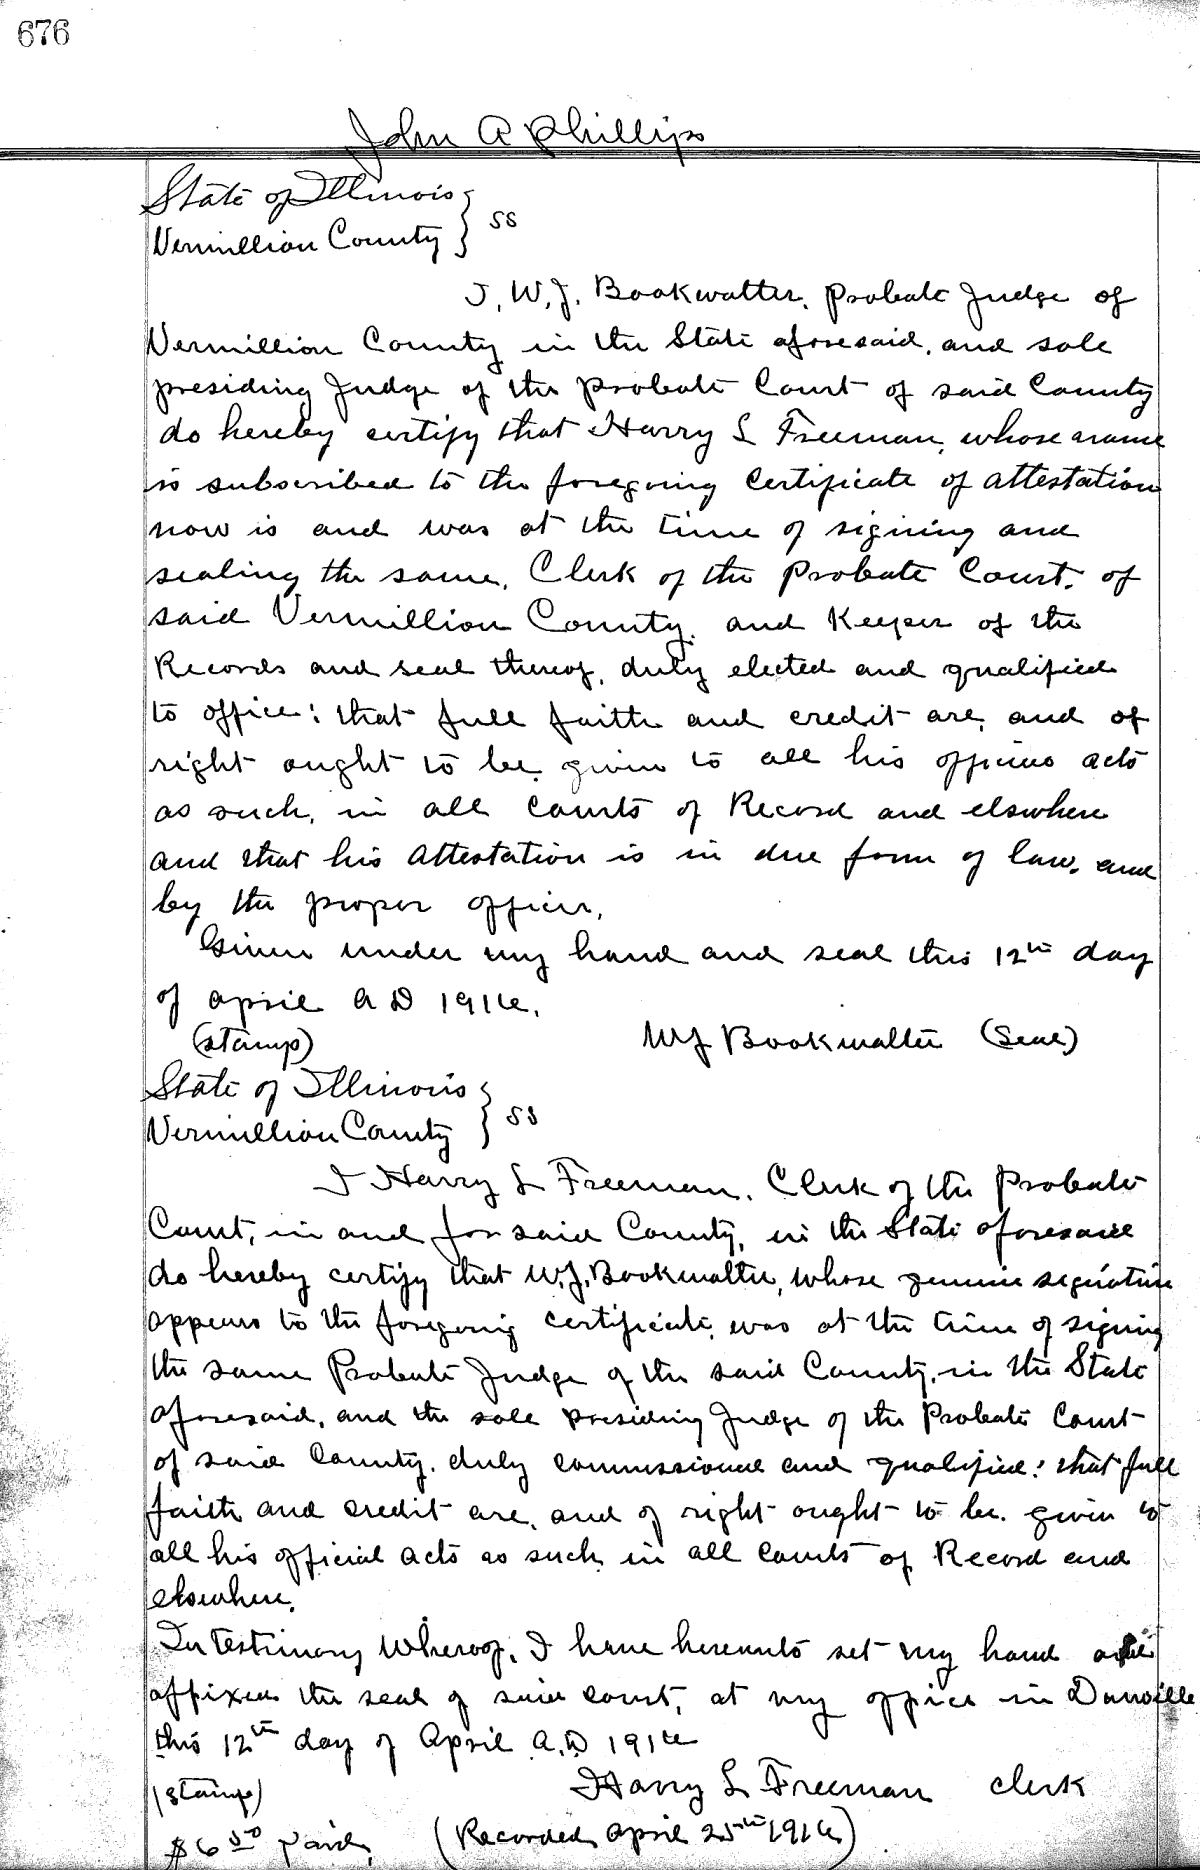 676
John A Phillips
State of Illinois }
Vermillion County } SS
I, W.J. Bookwalter, Probate Judge of
Vermillion County in the State aforesaid, and sole
presiding Judge of the Probate Court of said County
do hereby certify that Harry L Freeman, whose name
is subscribed to the foregoing Certificate of Attestation
now is and was at the time of signing and
sealing the same, Clerk of the Probate Court, of
said Vermillion County, and Keeper of the
Records and seal thereof, duly elected and qualified
to office: that full faith and credit are, and of
right ought to be given to all his offices acts
as such, in all Courts of Record and elswhere
and that his Attestation is in due form of law, and
by the proper officer,
Given under my hand and seal this 12th day
of April A D 1916,
(stamp) WJ Bookwalter (Seal)
State of Illinois }
Vermillion County } SS
I Harry L Freeman, Clerk of the Probate
Court, in and for said County, in the State aforesaid
do hereby certify that W.J. Bookwalter, whose genuine signature
appears to the foregoing certificate, was at the time of signing
the same Probate Judge of the said County, in the State
aforesaid, and the sole presiding Judge of the Probate Court
of said County, duly commissioned and qualified: that full
faith and credit are, and of right ought to be given to
all his official acts as such, in all Courts of Record and
elsewhere,
In Testimony Whereof, I have hereunto set my hand
affixed the seal of said Court, at my office in Danville
this 12th day of April A.D 1916
(stamp) Harry L Freeman Clerk
$6 50 paid, (Recorded April 25th 1916)